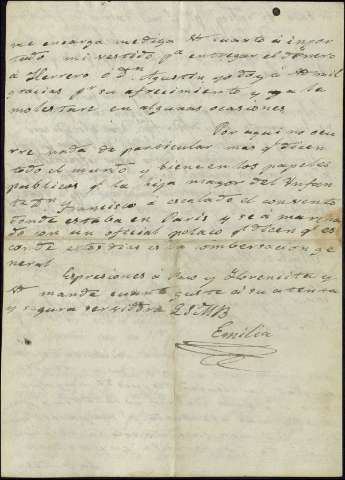 me encarga me diga V cuanto á inpor
tado mi vestido pª entregar el dinero
á Herrero o Dn Agustin yo doy á V mil
gracias pr su afrecimiento y ya la
molestare en algunas ocasiones
Por aqui no ocu
rre nada de particular mas qe dicen
todo el mundo y biene en los papeles
publicos qe la hija mayor del Infan
te Dn Francisco á escalado el convento
donde estaba en Paris y se á marcha
do con un oficial polaco qe dicen qe es
conde estos dias es la combersacion ge
neral
Espresiones á Paz y y
V mande cuanto guste á su atenta
y segura servidora QSMB
Emilia